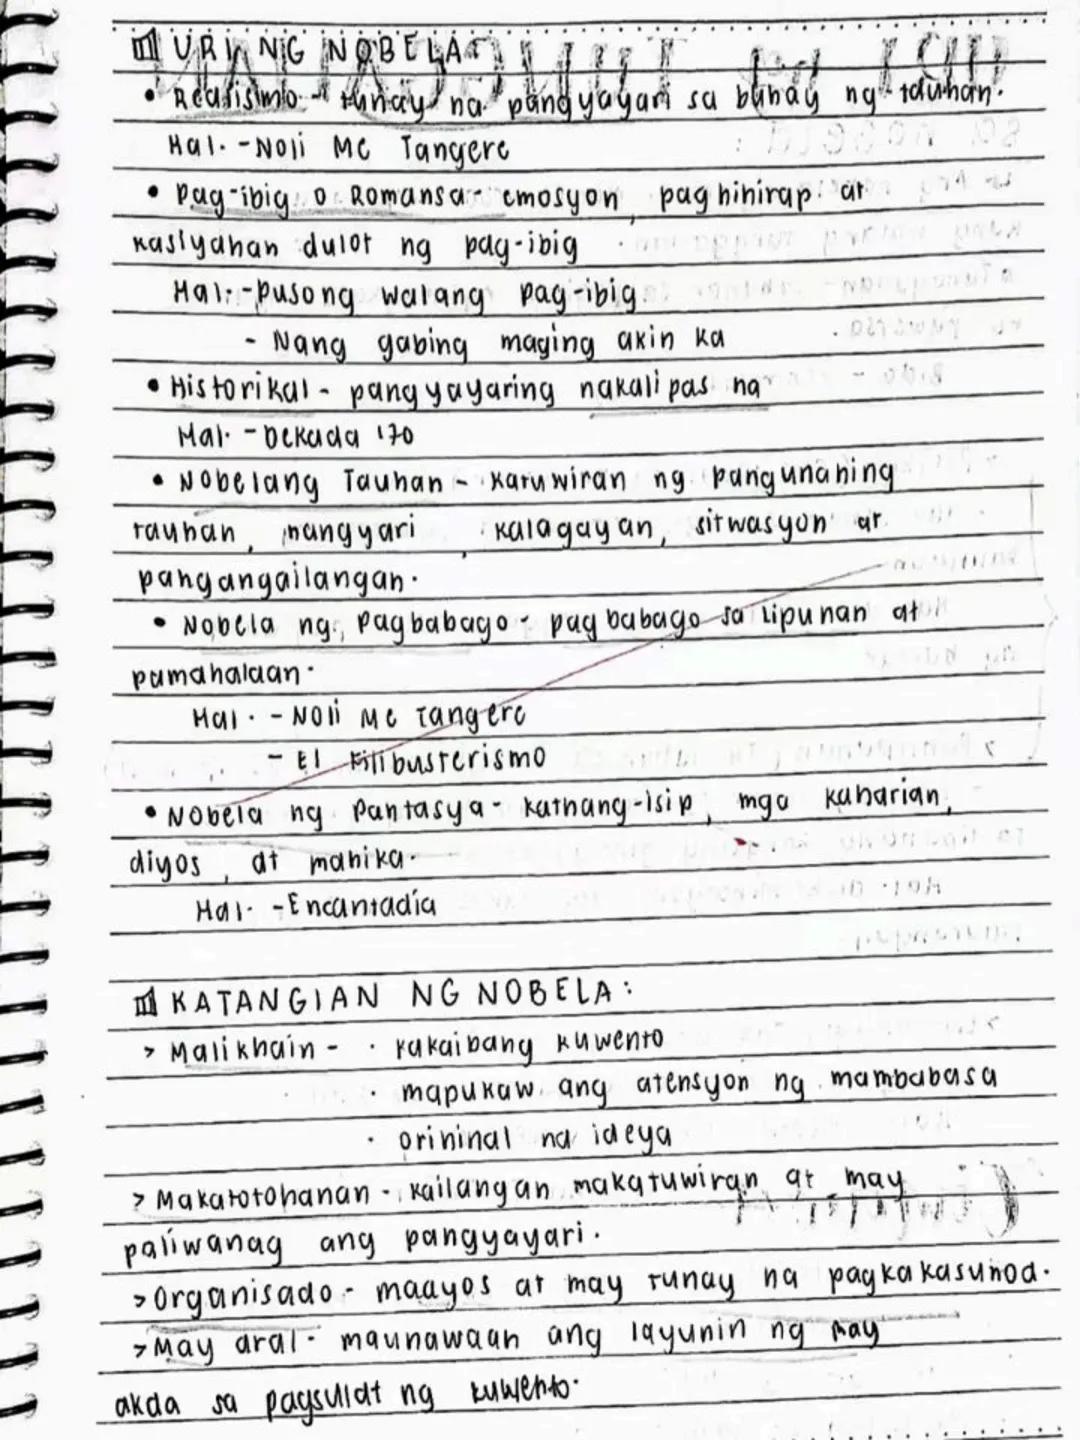 URI NG NOBELA:
• Realismo - tunay na pangyayari sa buhay ng tauhan.
Hal. - Noli Me Tangere
• Pag-ibig o Romansa - emosyon, paghihirap at
kasiyahan dulot ng pag-ibig
Hal. - pusong walang pag-ibig
- Nang gabing maging akin ka
• Historikal - pangyayaring nakalipas na
Hal. - Dekada '70
• Nobelang Tauhan - katuwiran ng pangunahing
tauhan, nangyari, kalagayan, sitwasyon at
pangangailangan.
• Nobela ng Pagbabago - pagbabago sa lipunan at
pamahalaan.
Hal. - Noli Me Tangere
- El Filibusterismo
• Nobela ng Pantasya - kathang-isip, mga kaharian,
diyos, at mahika.
Hal. - Encantadia
KATANGIAN NG NOBELA:
> Malikhain - • kakaibang kuwento
• mapukaw ang atensyon ng mambabasa
• orihinal na ideya
> Makatotohanan - kailangan makatuwiran at may
paliwanag ang pangyayari.
> Organisado - maayos at may tunay na pagkakasunod.
> May aral - maunawaan ang layunin ng may
akda sa pagsulat ng kuwento.